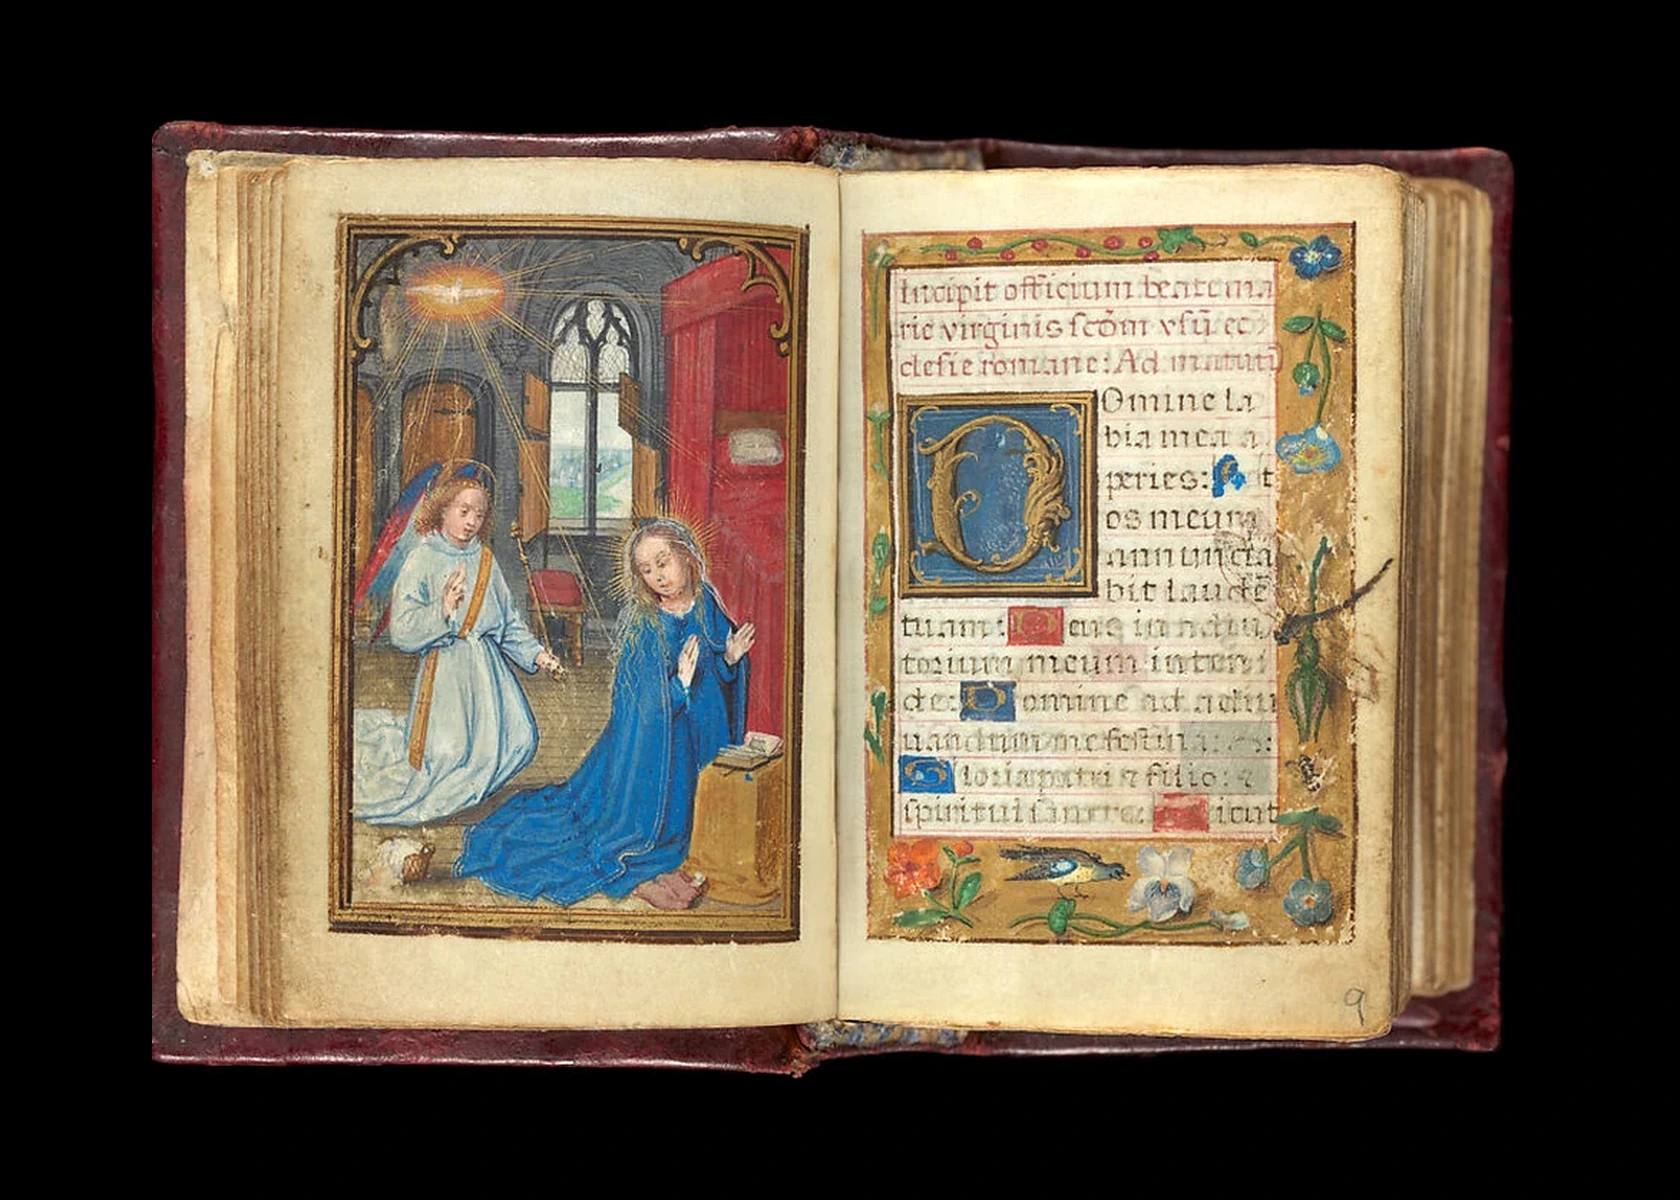 Incipit offiçium beate ma
rie virginis scōm vsū ec
clesie romane: Ad matutī
Omine la
bia mea a
peries: Et
os meum
annuncia
bit laudē
tuam: Deus in adiu
torium meum inten
de: Domine ad adiu
uandum me festina:
Gloria patri ⁊ filio: ⁊
spiritui sancto: Sicut
9